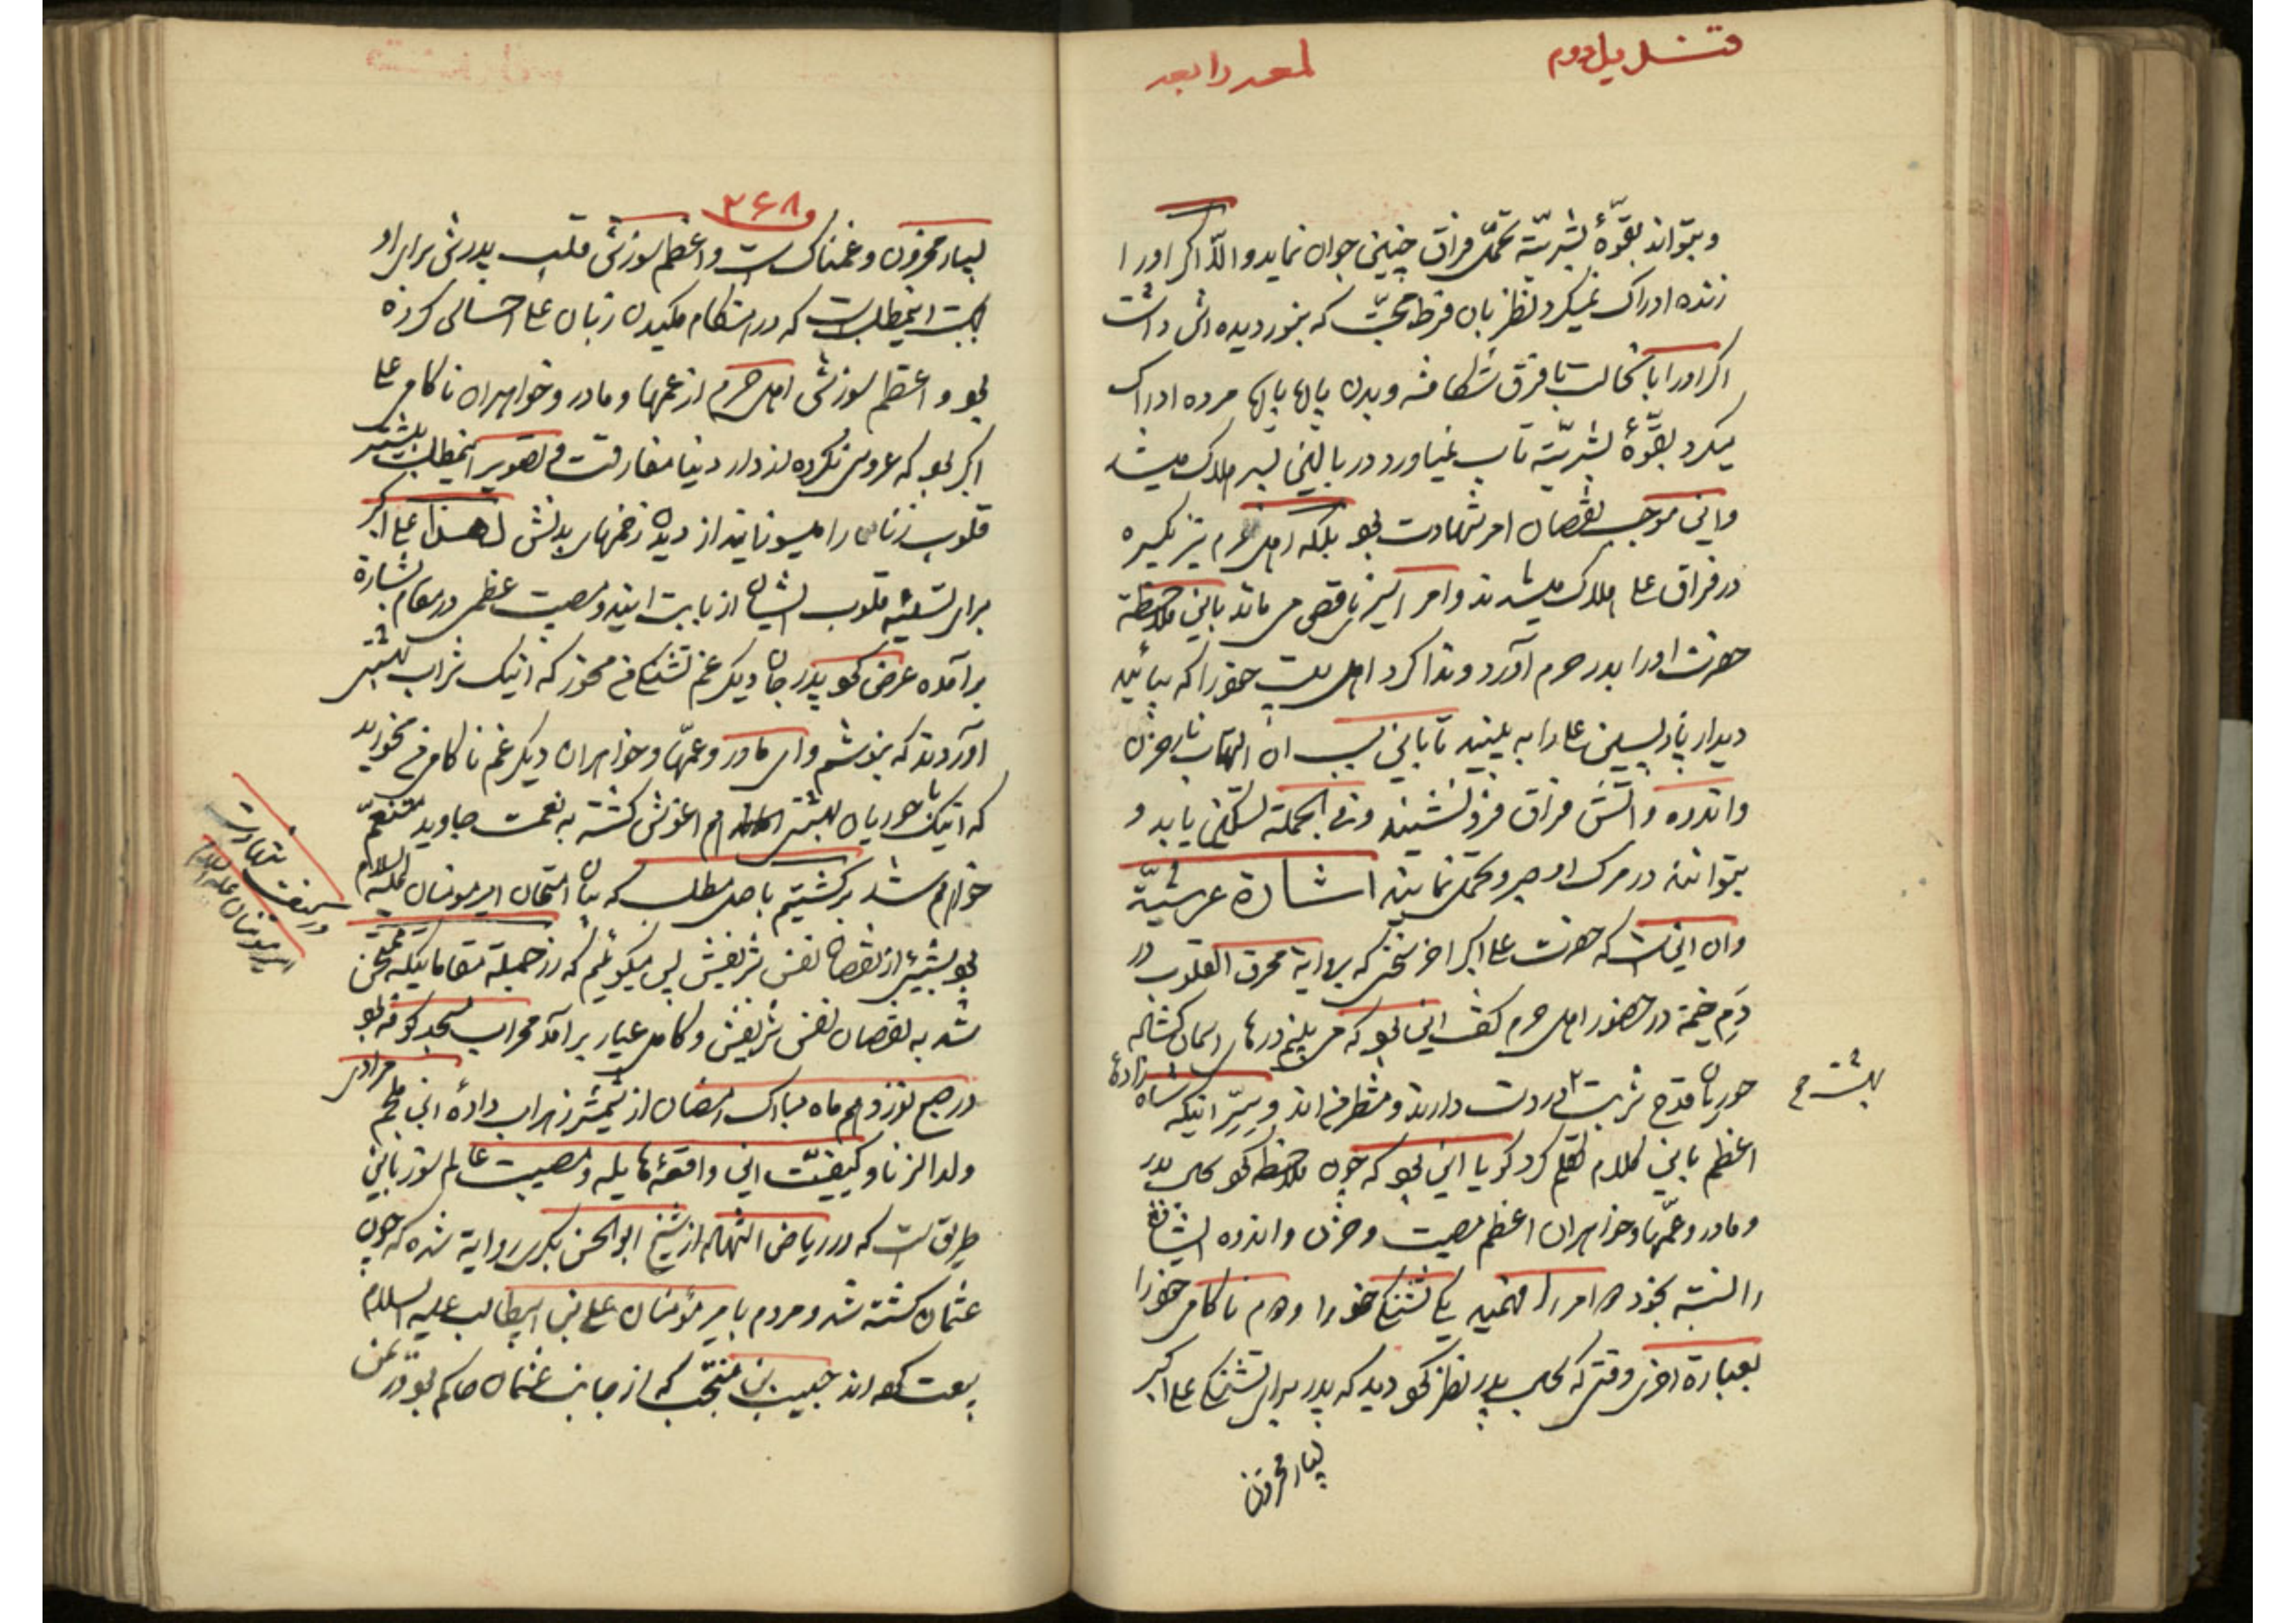 قندیل دوم
لمعه رابعه
و بتواند بقوّهٔ بشریّة تحمّل فراق چنین جوان نماید والّا اگر اورا
زنده ادراک نمیکرد نظر بان فرط محبّت که بنور دیده اش داشت
اگر اورا با نحالت با فرق شکافته و بدن پاره پاره مرده ادراک
میکرد بقوّهٔ بشریّة تاب نمیاورد در بالین پسر هلاک میشد
و این موجب نقصان امر شهادت بود بلکه اهل حرم نیز یکسره
در فراق علی هلاک میشدند و امر اسیری ناقص می ماند باین ملاحظه
حضرت اورا بدر حرم آورد و ندا کرد اهل بیت خود را که بیائید
دیدار بازپسین علی را به بینید تا باین سبب ان التهاب نار حزن
و اندوه و آتش فراق فرو نشیند و فی الجملة تسکین یابد و
بتوانند در مرک او صبر و تحمل نمایند اشارة عرشیّة
وان این است که حضرت علی اکبر اخر سخنی که بروایة محرق القلوب در
دَمِ خیمة در حضور اهل حرم گفت این بود که می بینم درهای اسمان گشاده
حوریان قدح شربت در دست دارند و منتظر من اند و سرّ اینکه شاه زادهٔ
بهشت
اعظم باین کلام تکلم کرد گویا این بود که چون ملاحظه نمود که پدر
و مادر و عمّها و خواهران اعظم مصیبت و حزن و اندوه ایشان
را نسبة بخود دو امر را فهمید یکی تشنگی خود را و دوم ناکامی خود را
بعبارة اخری وقتی که بجانب پدر نظر نمود دید که پدر برای تشنگی علی اکبر
بسیار محزون
۲۶۸
بسیار محزون و غمناک است و اعظم سوزش قلب پدرش برای او
بجهت اینمطلب است که در هنگام مکیدن زبان علی احساس کرده
بود و اعظم سوزش اهل حرم از عمها و مادر و خواهران ناکامی علی
اکبر بود که عروسی نکرده از دار دنیا مفارقت و تصویر اینمطلب بیشتر
قلوب زنان را میسوزاند از دیدن زخمهای بدنش لهذا علی اکبر
برای تسلیه قلوب ایشان از بابت این دو مصیبت عظمی در مقام بشارة
برآمده عرض نمود پدر جان دیگر غم تشنگی من مخور که اینک شراب بهشتی
آوردند که بنوشم و ای مادر و عمّها و خواهران دیگر غم ناکامی من مخورید
که اینک با حوریان بهشتی هم اغوش گشته به نعمت جاوید متنعّم
خواهم شد برگشتیم باصل مطلب که بیان امتحان امیر مومنان علیه السلام
در کیفیت شهادت
امیر مومنان علیه السلام
بود بشیئی از نقصان نفس شریفش پس میگوئیم که از جمله مقاماتیکه ممتحن
شد به نقصان نفس شریفش و کامل عیار برآمد محراب مسجد کوفه بود
در صبح نوزدهم ماه مبارک رمضان از شمشیر زهراب دادهٔ ابن ملجم مرادی
ولد الزنا و کیفیّت این واقعهٔ هایله و مصیبت عالم سوز باین
طریق است که در ریاض الشهاده از شیخ ابوالحسن بکری روایة شده که چون
عثمان کشته شد و مردم با امیر مؤمنان علی بن ابیطالب علیه السلام
بیعت کردند حبیب بن منتجب که از جانب عثمان حاکم بود در یمن